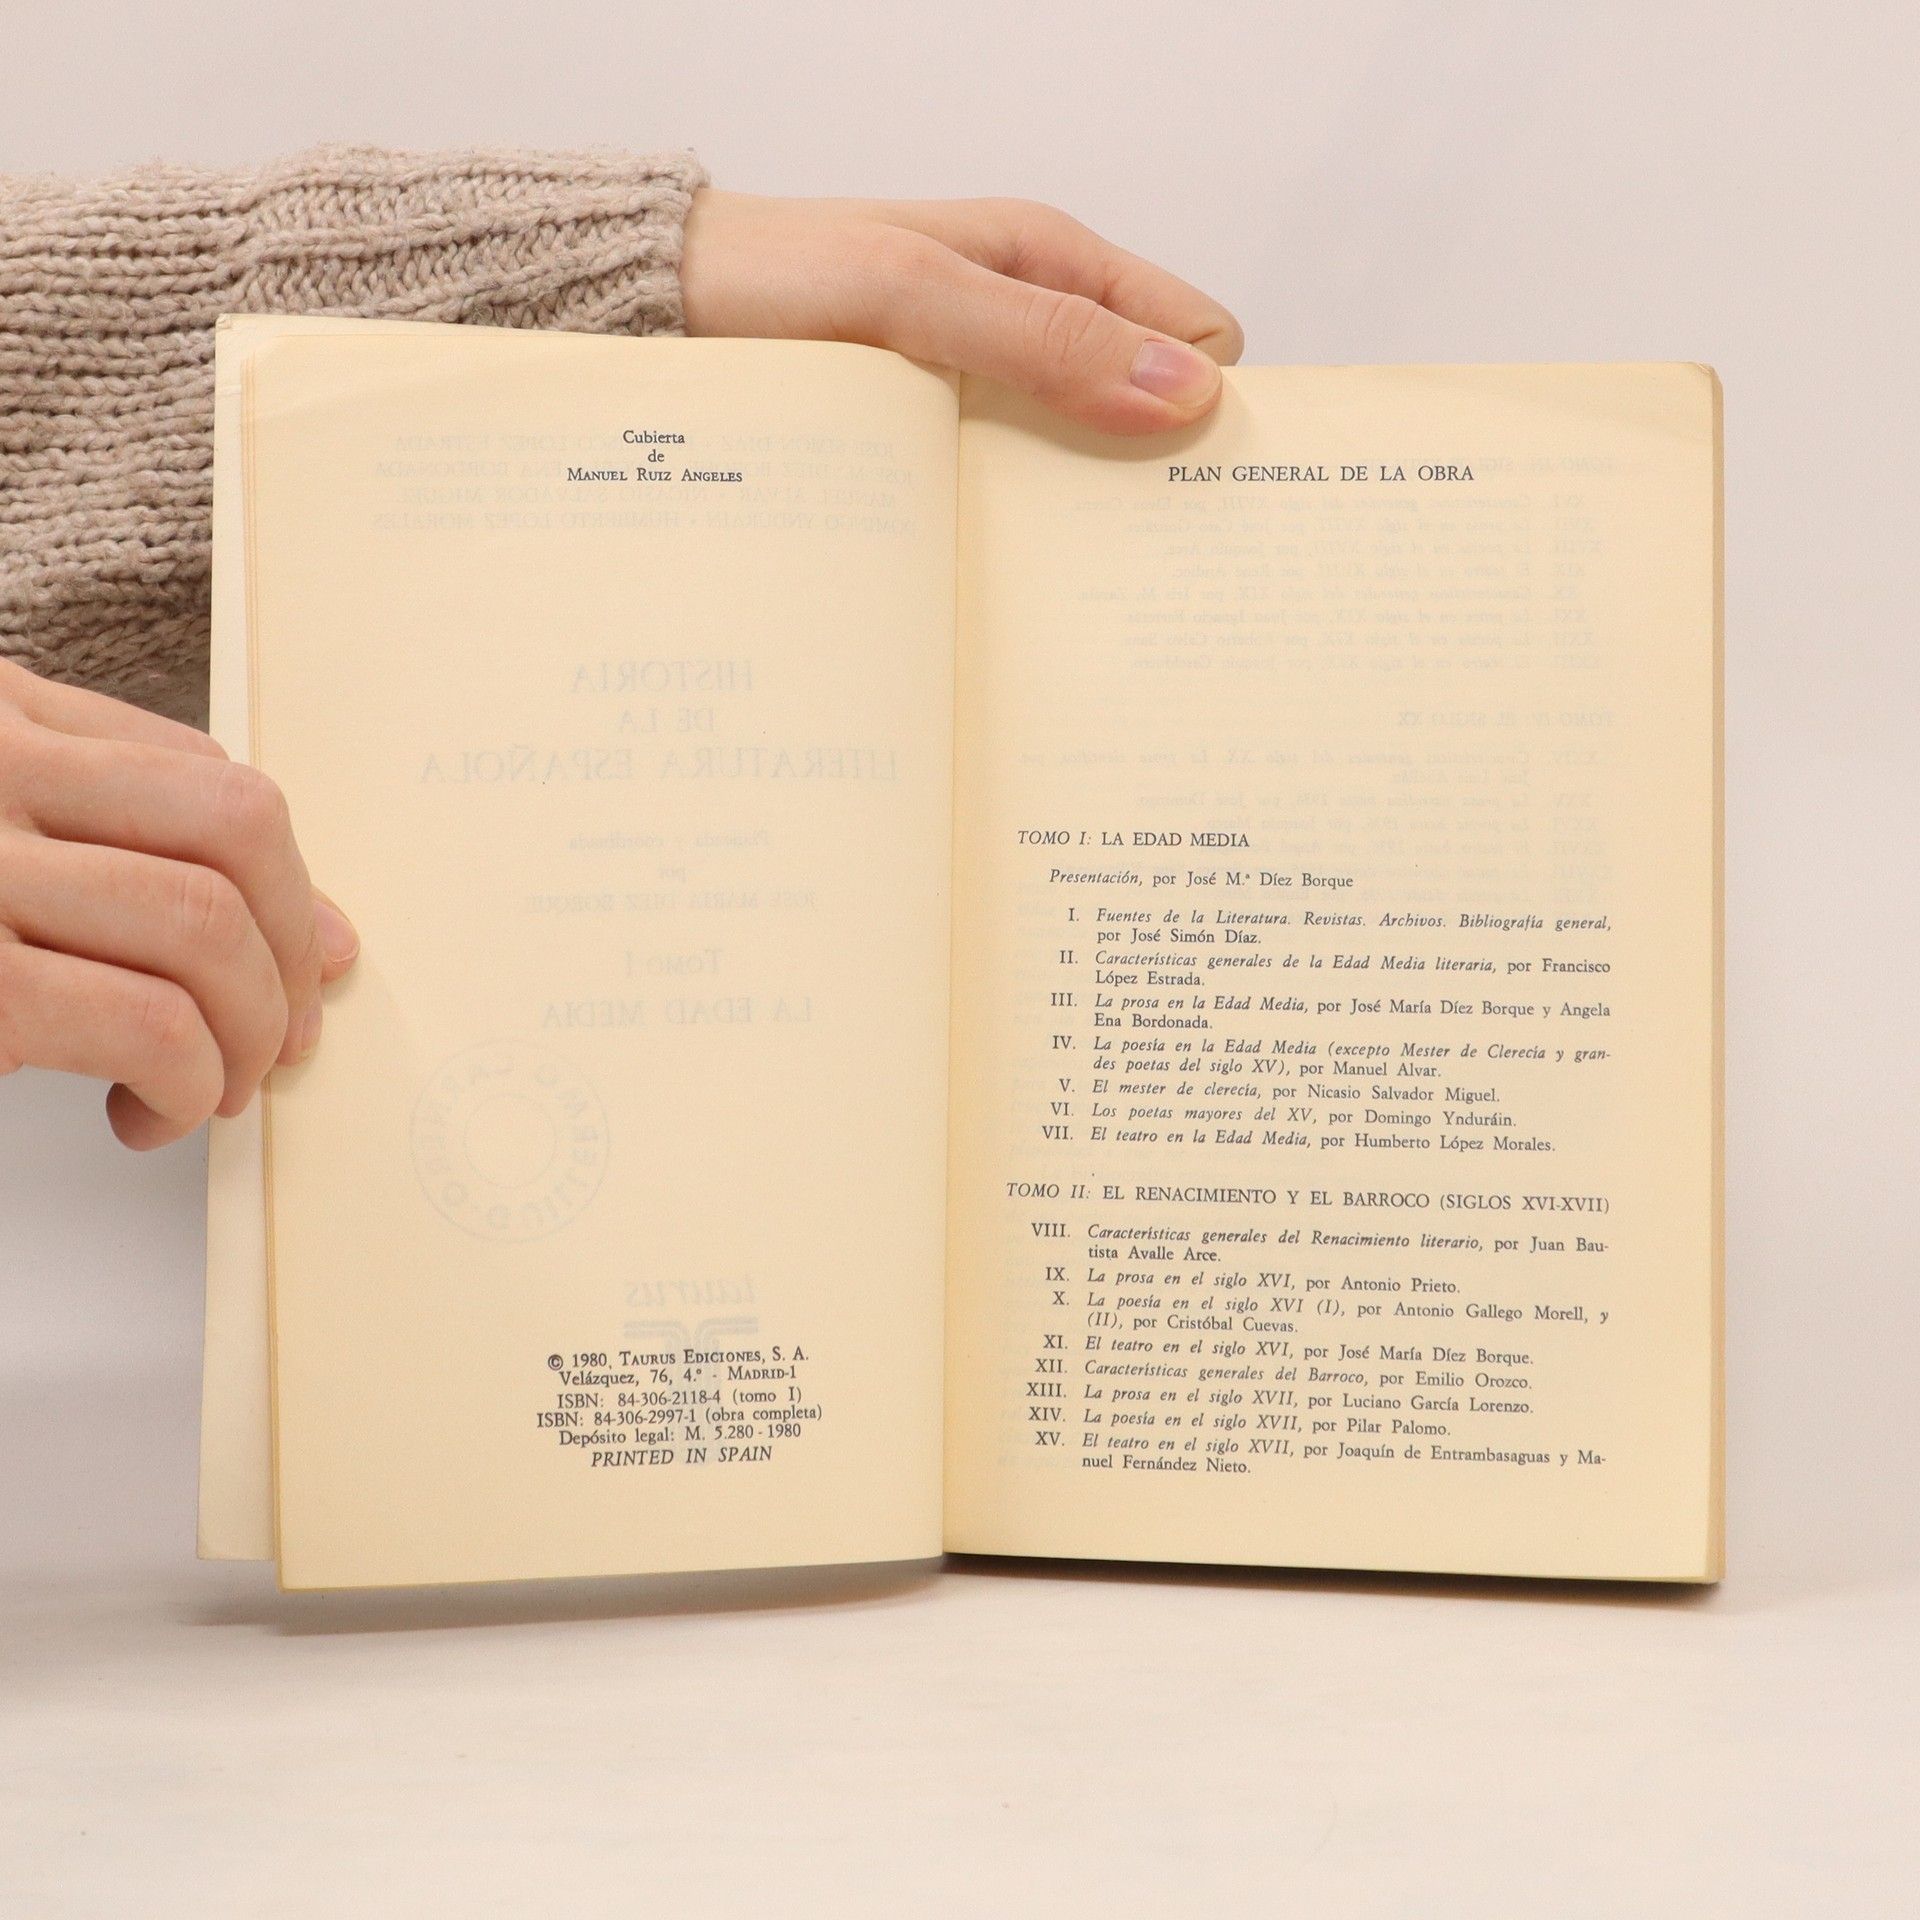 Cubierta
de
MANUEL RUIZ ANGELES
© 1980, TAURUS EDICIONES, S. A.
Velázquez, 76, 4.º - MADRID-1
ISBN: 84-306-2118-4 (tomo I)
ISBN: 84-306-2997-1 (obra completa)
Depósito legal: M. 5.280 - 1980
PRINTED IN SPAIN
PLAN GENERAL DE LA OBRA
TOMO I: LA EDAD MEDIA
Presentación, por José M.ª Díez Borque
I. Fuentes de la Literatura. Revistas. Archivos. Bibliografía general,
por José Simón Díaz.
II. Características generales de la Edad Media literaria, por Francisco
López Estrada.
III. La prosa en la Edad Media, por José María Díez Borque y Angela
Ena Bordonada.
IV. La poesía en la Edad Media (excepto Mester de Clerecía y gran-
des poetas del siglo XV), por Manuel Alvar.
V. El mester de clerecía, por Nicasio Salvador Miguel.
VI. Los poetas mayores del XV, por Domingo Ynduráin.
VII. El teatro en la Edad Media, por Humberto López Morales.
TOMO II: EL RENACIMIENTO Y EL BARROCO (SIGLOS XVI-XVII)
VIII. Características generales del Renacimiento literario, por Juan Bau-
tista Avalle Arce.
IX. La prosa en el siglo XVI, por Antonio Prieto.
X. La poesía en el siglo XVI (I), por Antonio Gallego Morell, y
(II), por Cristóbal Cuevas.
XI. El teatro en el siglo XVI, por José María Díez Borque.
XII. Características generales del Barroco, por Emilio Orozco.
XIII. La prosa en el siglo XVII, por Luciano García Lorenzo.
XIV. La poesía en el siglo XVII, por Pilar Palomo.
XV. El teatro en el siglo XVII, por Joaquín de Entrambasaguas y Ma-
nuel Fernández Nieto.